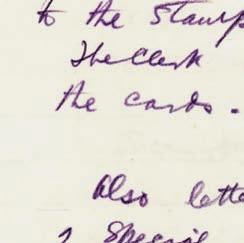 to the Stamp
The Clerk
the cards.
Also lette